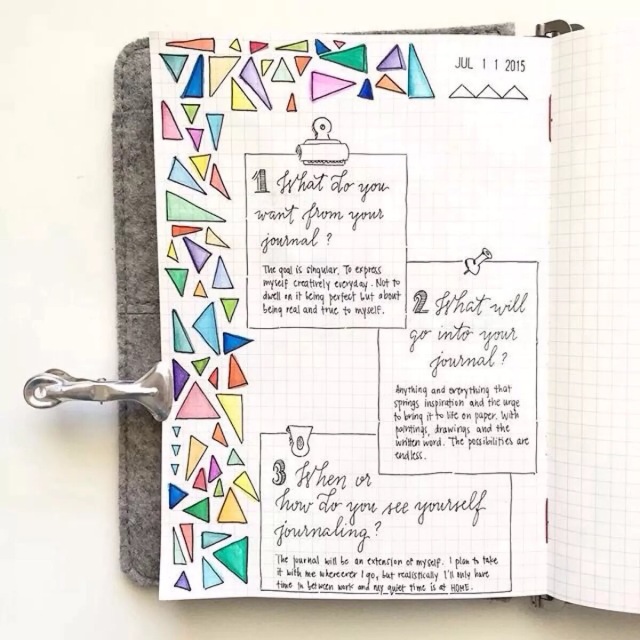 JUL 11 2015
1 What do you
want from your
journal?
The goal is singular. To express
myself creatively everyday. Not to
dwell on it being perfect but about
being real and true to myself.
2 What will
go into your
journal?
Anything and everything that
springs inspiration and the urge
to bring it to life on paper. With
paintings, drawings and the
written word. The possibilities are
endless.
3 When or
how do you see yourself
journaling?
The journal will be an extension of myself. I plan to take
it with me wherever I go, but realistically I'll only have
time in between work and my quiet time is at HOME.